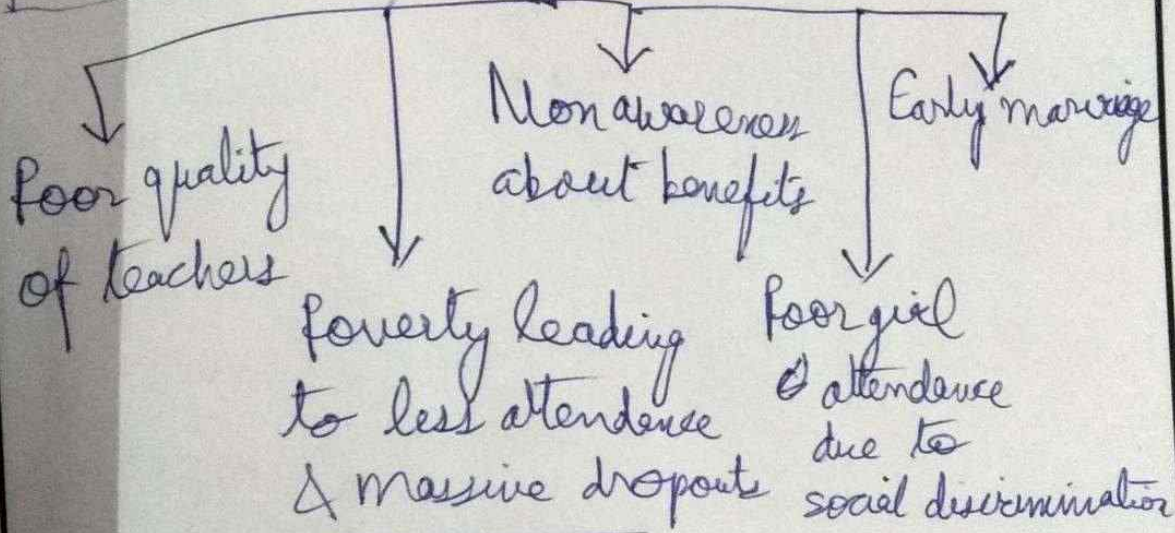 Poor quality
of teachers
Poverty leading
to less attendence
& massive dropouts
Non awareness
about benefits
Poor girl
attendence
due to
social discrimination
Early marriage